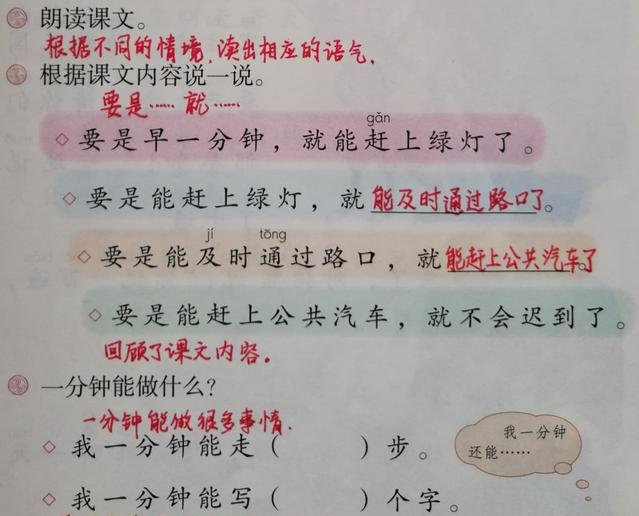 朗读课文。
根据不同的情境,读出相应的语气.
根据课文内容说一说。
要是……就……
gǎn
◇要是早一分钟，就能赶上绿灯了。
◇要是能赶上绿灯，就能及时通过路口了。
jí tōng
◇要是能及时通过路口，就能赶上公共汽车了
◇要是能赶上公共汽车，就不会迟到了。
回顾了课文内容。
一分钟能做什么?
一分钟能做很多事情.
◇我一分钟能走（ ）步。
我一分钟
还能……
◇我一分钟能写（ ）个字。